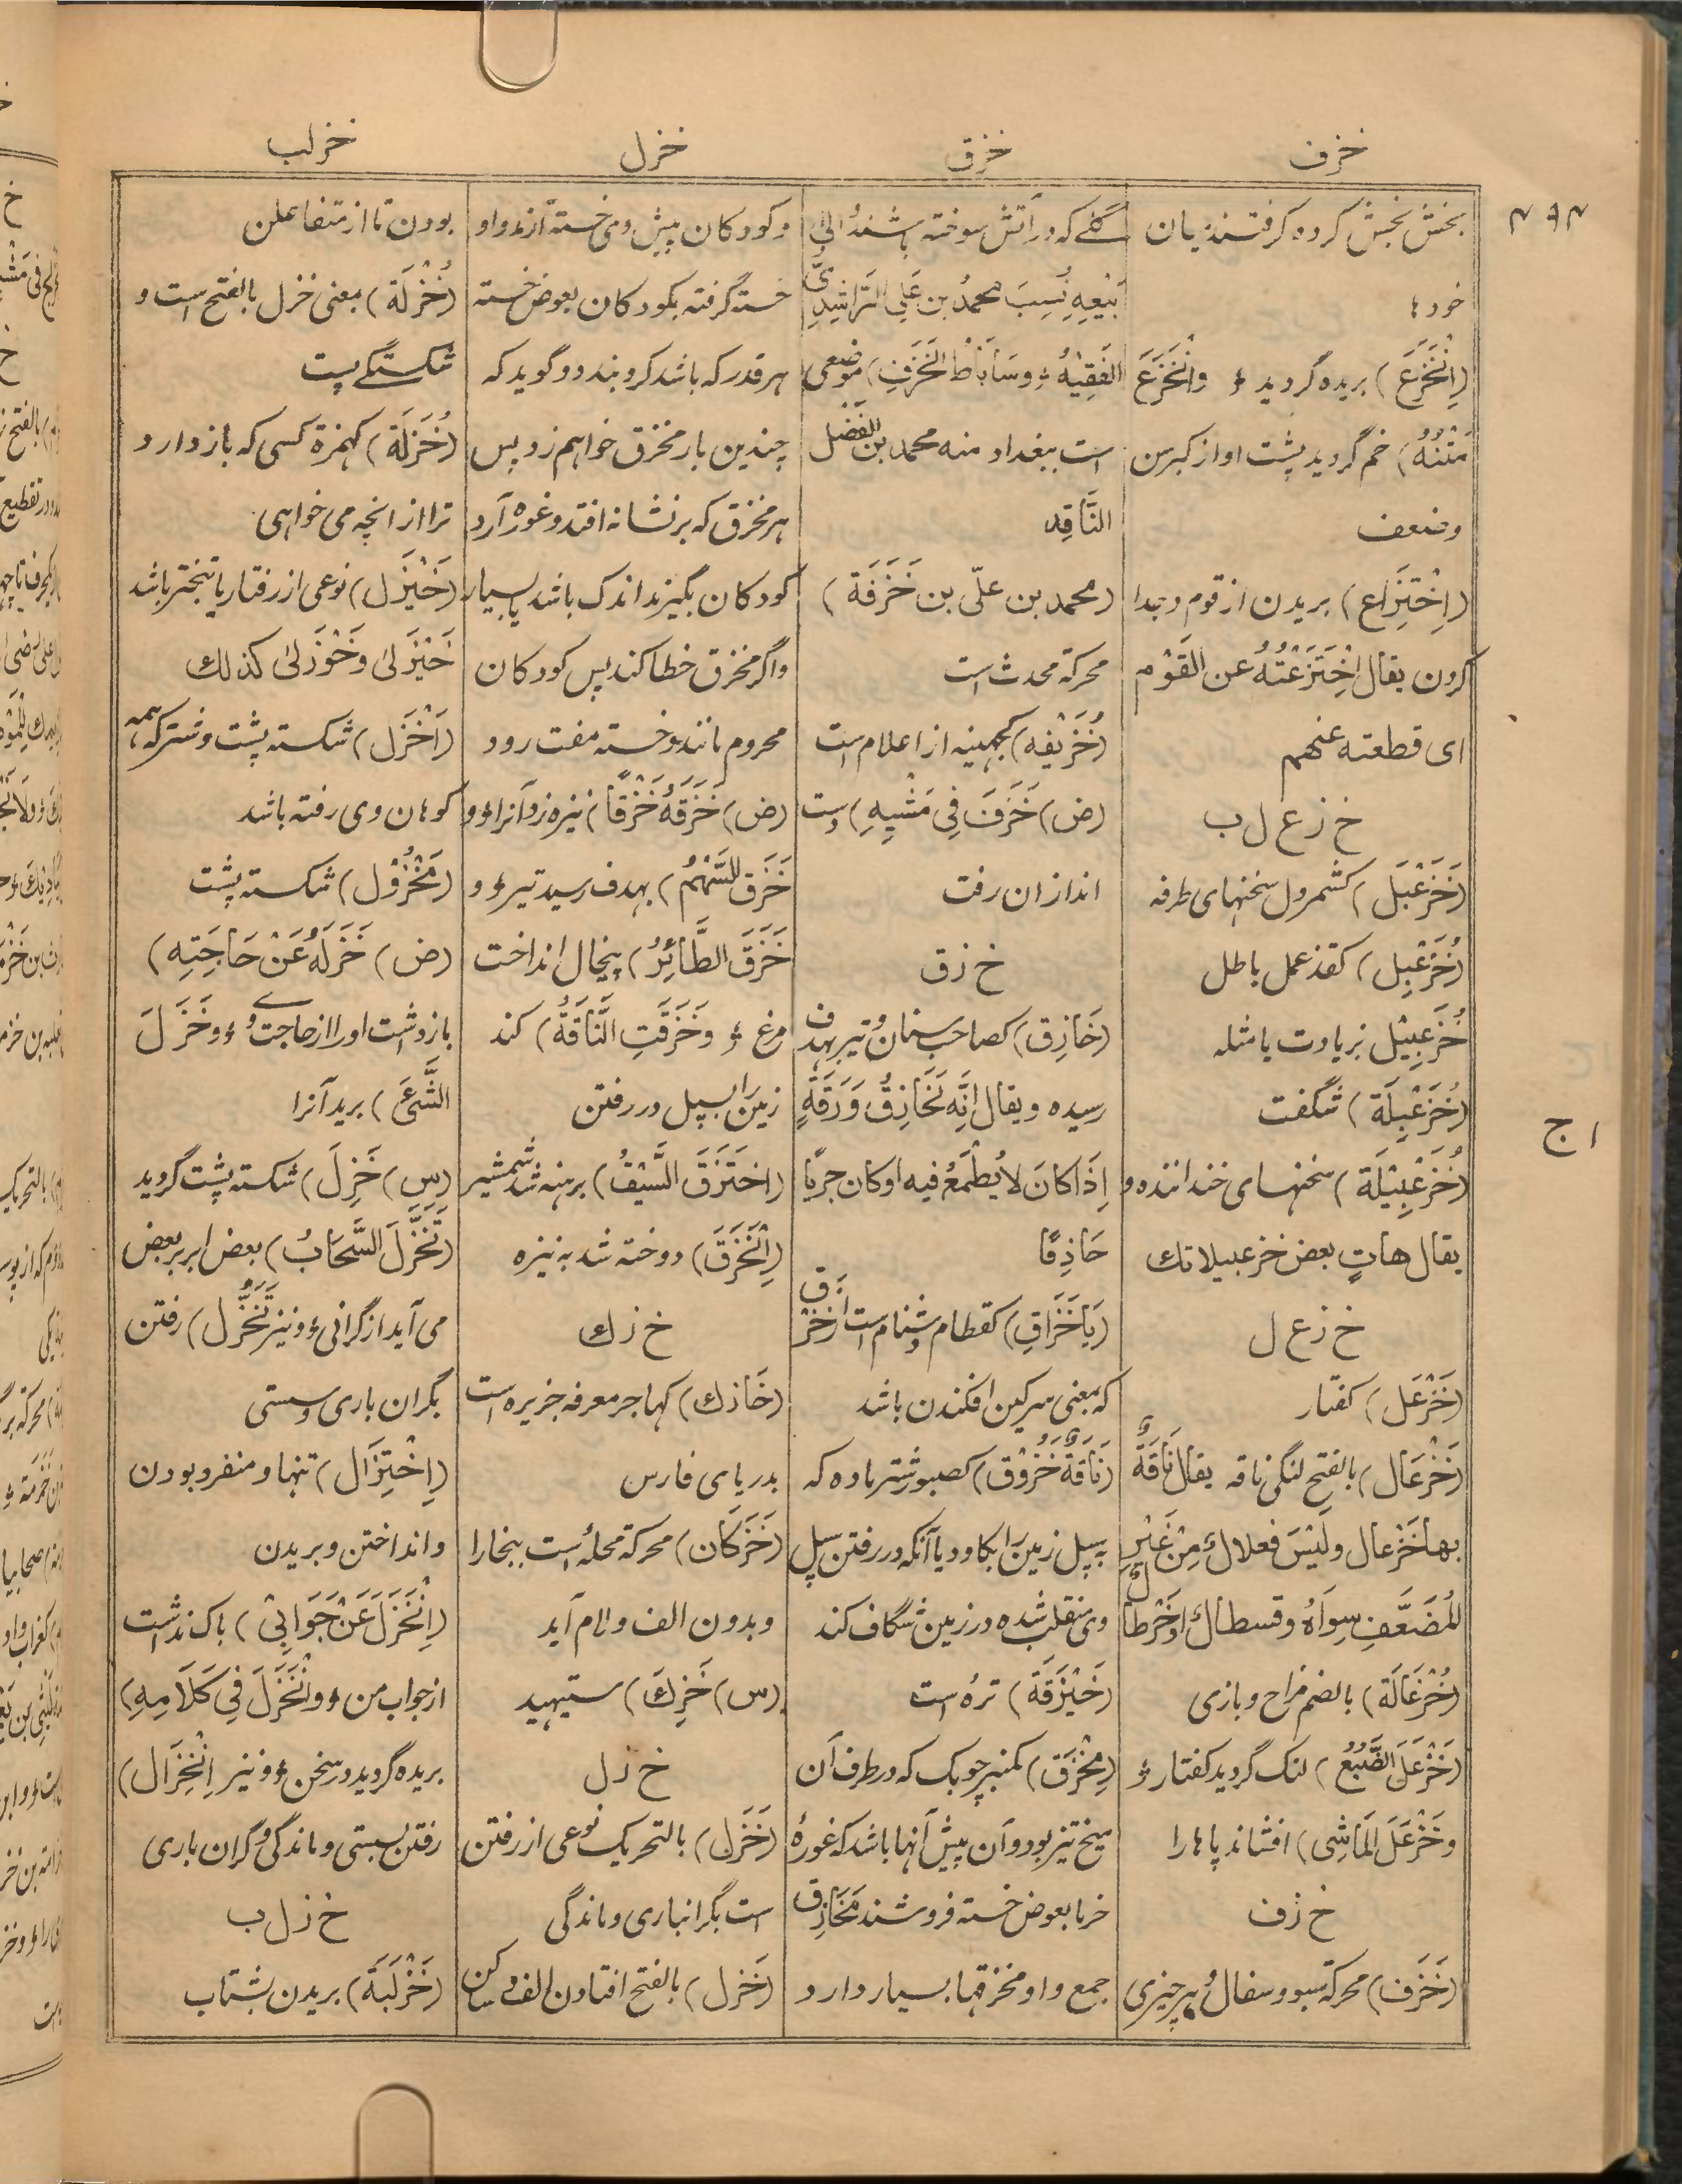 خزف
خزق
خزل
خزلب
۴۹۴
بخش بخش کرده گرفتند زیان
خودها
(اِنْخَزَعَ) بریده گردید ؤ وانْخَزَعَ
مَتْنُهُ) خم گردید پشت او از کبر سن
وضعف
(اِخْتِزَاع) بریدن از قوم و جدا
کردن یقال اِخْتَزَعْتُهُ عن القَوْم
ای قطعته عنهم
خ ز ع ل ب
(خَزَعْبَل) کشمردل سخنهای طرفه
(خُزَعْبِل) کقذعمل باطل
خُزَعْبِیْل بزیادت یا مثله
(خُزَعْبِلَة) شگفت
(خُزَعْبِیْلَة) سخنهای خنداننده و
یقال هاتِ بعض خزعبیلاتك
خ ز ع ل
(خَزْعَل) کفتار
(خَزْعَال) بالفتح لنگی ناقه یقال نَاقَةٌ
بها خَزْعال ولَیْسَ فعلالٌ مِنْ غَیْرِ
المُضَعَّفِ سِوَاهُ وقسطالٌ او خَرْطالٌ
(خُزْعَالَة) بالضم مزاح و بازی
(خَزْعَلَ الضَّبُعُ) لنگ گردید کفتار ؤ
وخَزْعَلَ المَاشِی) افشاند پاها را
خ ز ف
(خَزَف) محرکة سبو و سفال و هر چیزی
گلے که در آتش سوخته باشند الیٰ
بَیْعِهِ نُسِبَ محمدُ بن عَلِی الرَّاشِدِیُّ
الفَقِیْهُ ؤ وسَابَاطُ الخَزَفِ) موضعی
است ببغداد منه محمد بن الفَضْل
النَّاقِد
(محمد بن علّی بن خَزَفَة)
محرکة محدث است
(خُزَیْفه) کجهینه از اعلام است
(ض) خَزَفَ فِی مَشْیِهِ) دست
اندازان رفت
خ ز ق
(خَازِق) کصاحب سنان و تیر بهدف
رسیده ویقال اِنَّه لَخَازِقُ وَرَقَةٍ
اِذَا کانَ لا یُطْمَعُ فیه او کان جریًا
حَاذِقًا
(یَا خَزَاقِ) کقطام دشنام است از خزق
که بمعنی سرگین افکندن باشد
(نَاقَةٌ خَزُوْق) کصبور شتر ماده که
به سپل زمین را بکاود یا آنکه در رفتن سپل
وی منقلب شده در زمین شگاف کند
(خَیْزَقَة) تره است
(مِخْزَق) کمنبر چوبک که در طرف آن
میخ تیز بود و آن پیش آنها باشد که غورۀ
خرما بعوض خسته فروشند مَخَازِق
جمع و او مخزقها بسیار دارد
و کودکان پیش وی خسته آرند و او
خسته گرفته بکودکان بعوض خسته
هر قدر که باشد گرو بندد و گوید که
چندین بار مخزق خواهم زد پس
هر مخزق که بر نشانه افتد و غوره آرد
کودکان بگیرند اندک باشد یا بسیار
و اگر مخزق خطا کند پس کودکان
محروم مانند و خسته مفت رود
(ض) خَزَقَهُ خَزْقًا) نیزه زد آنرا ؤ و
خَزَقَ السَّهْمُ) بهدف رسید تیر ؤ و
خَزَقَ الطَّائِرُ) پیخال انداخت
مرغ ؤ وخَزَقَتِ النَّاقَةُ) کند
زمین را بسپل در رفتن
(اخْتَزَقَ السَّیْفُ) برهنه شد شمشیر
(اِنْخَزَقَ) دوخته شد به نیزه
خ ز ك
(خَازك) کهاجر معرفه جزیره است
بدریای فارس
(خَزَکَان) محرکة محلهٔ است ببخارا
وبدون الف و لام آید
(س) خَزِكَ) ستیهید
خ ز ل
(خَزَل) بالتحریک نوعی از رفتن
است بگرانباری و ماندگی
(خَزل) بالفتح افتادن الف و ساکن
بودن تا از متفاعلن
(خُزْلَة) بمعنی خزل بالفتح است و
شکستگی پشت
(خُزَلَة) کهمزة کسی که باز دارد
ترا از انچه می خواهی
(خَیْزَل) نوعی از رفتار یا تبختر باشد
خَیْزَلیٰ وخَوْزَلیٰ کذلك
(اَخْزَل) شکسته پشت و شتر که همه
کوهان وی رفته باشد
(مَخْزُوْل) شکسته پشت
(ض) خَزَلَهُ عَنْ حَاجَتِهِ)
باز داشت او را از حاجت وے ؤ وخَزَلَ
الشَّیْءَ) برید آنرا
(س) خَزِلَ) شکسته پشت گردید
(تَخَزَّلَ السَّحَابُ) بعض ابر بر بعض
می آید از گرانی ؤ و نیز تَخَزُّل) رفتن
بگران باری و سستی
(اِخْتِزَال) تنها و منفرد بودن
وانداختن وبریدن
(اِنْخَزَلَ عَنْ جَوَابِیْ) باک نداشت
از جواب من ؤ وانْخَزَلَ فِی کَلَامِهِ)
بریده گردید در سخن ؤ و نیز اِنْخِزَال)
رفتن بسستی و ماندگی و گران باری
خ ز ل ب
(خَزْلَبَة) بریدن بشتاب
ا ج